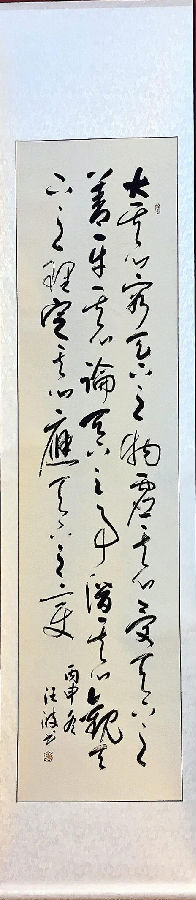 大其心容天下之物虚其心受天下之
善平其心論天下之事潛其心觀天
下之理定其心應天下之变
丙申冬
汪波书